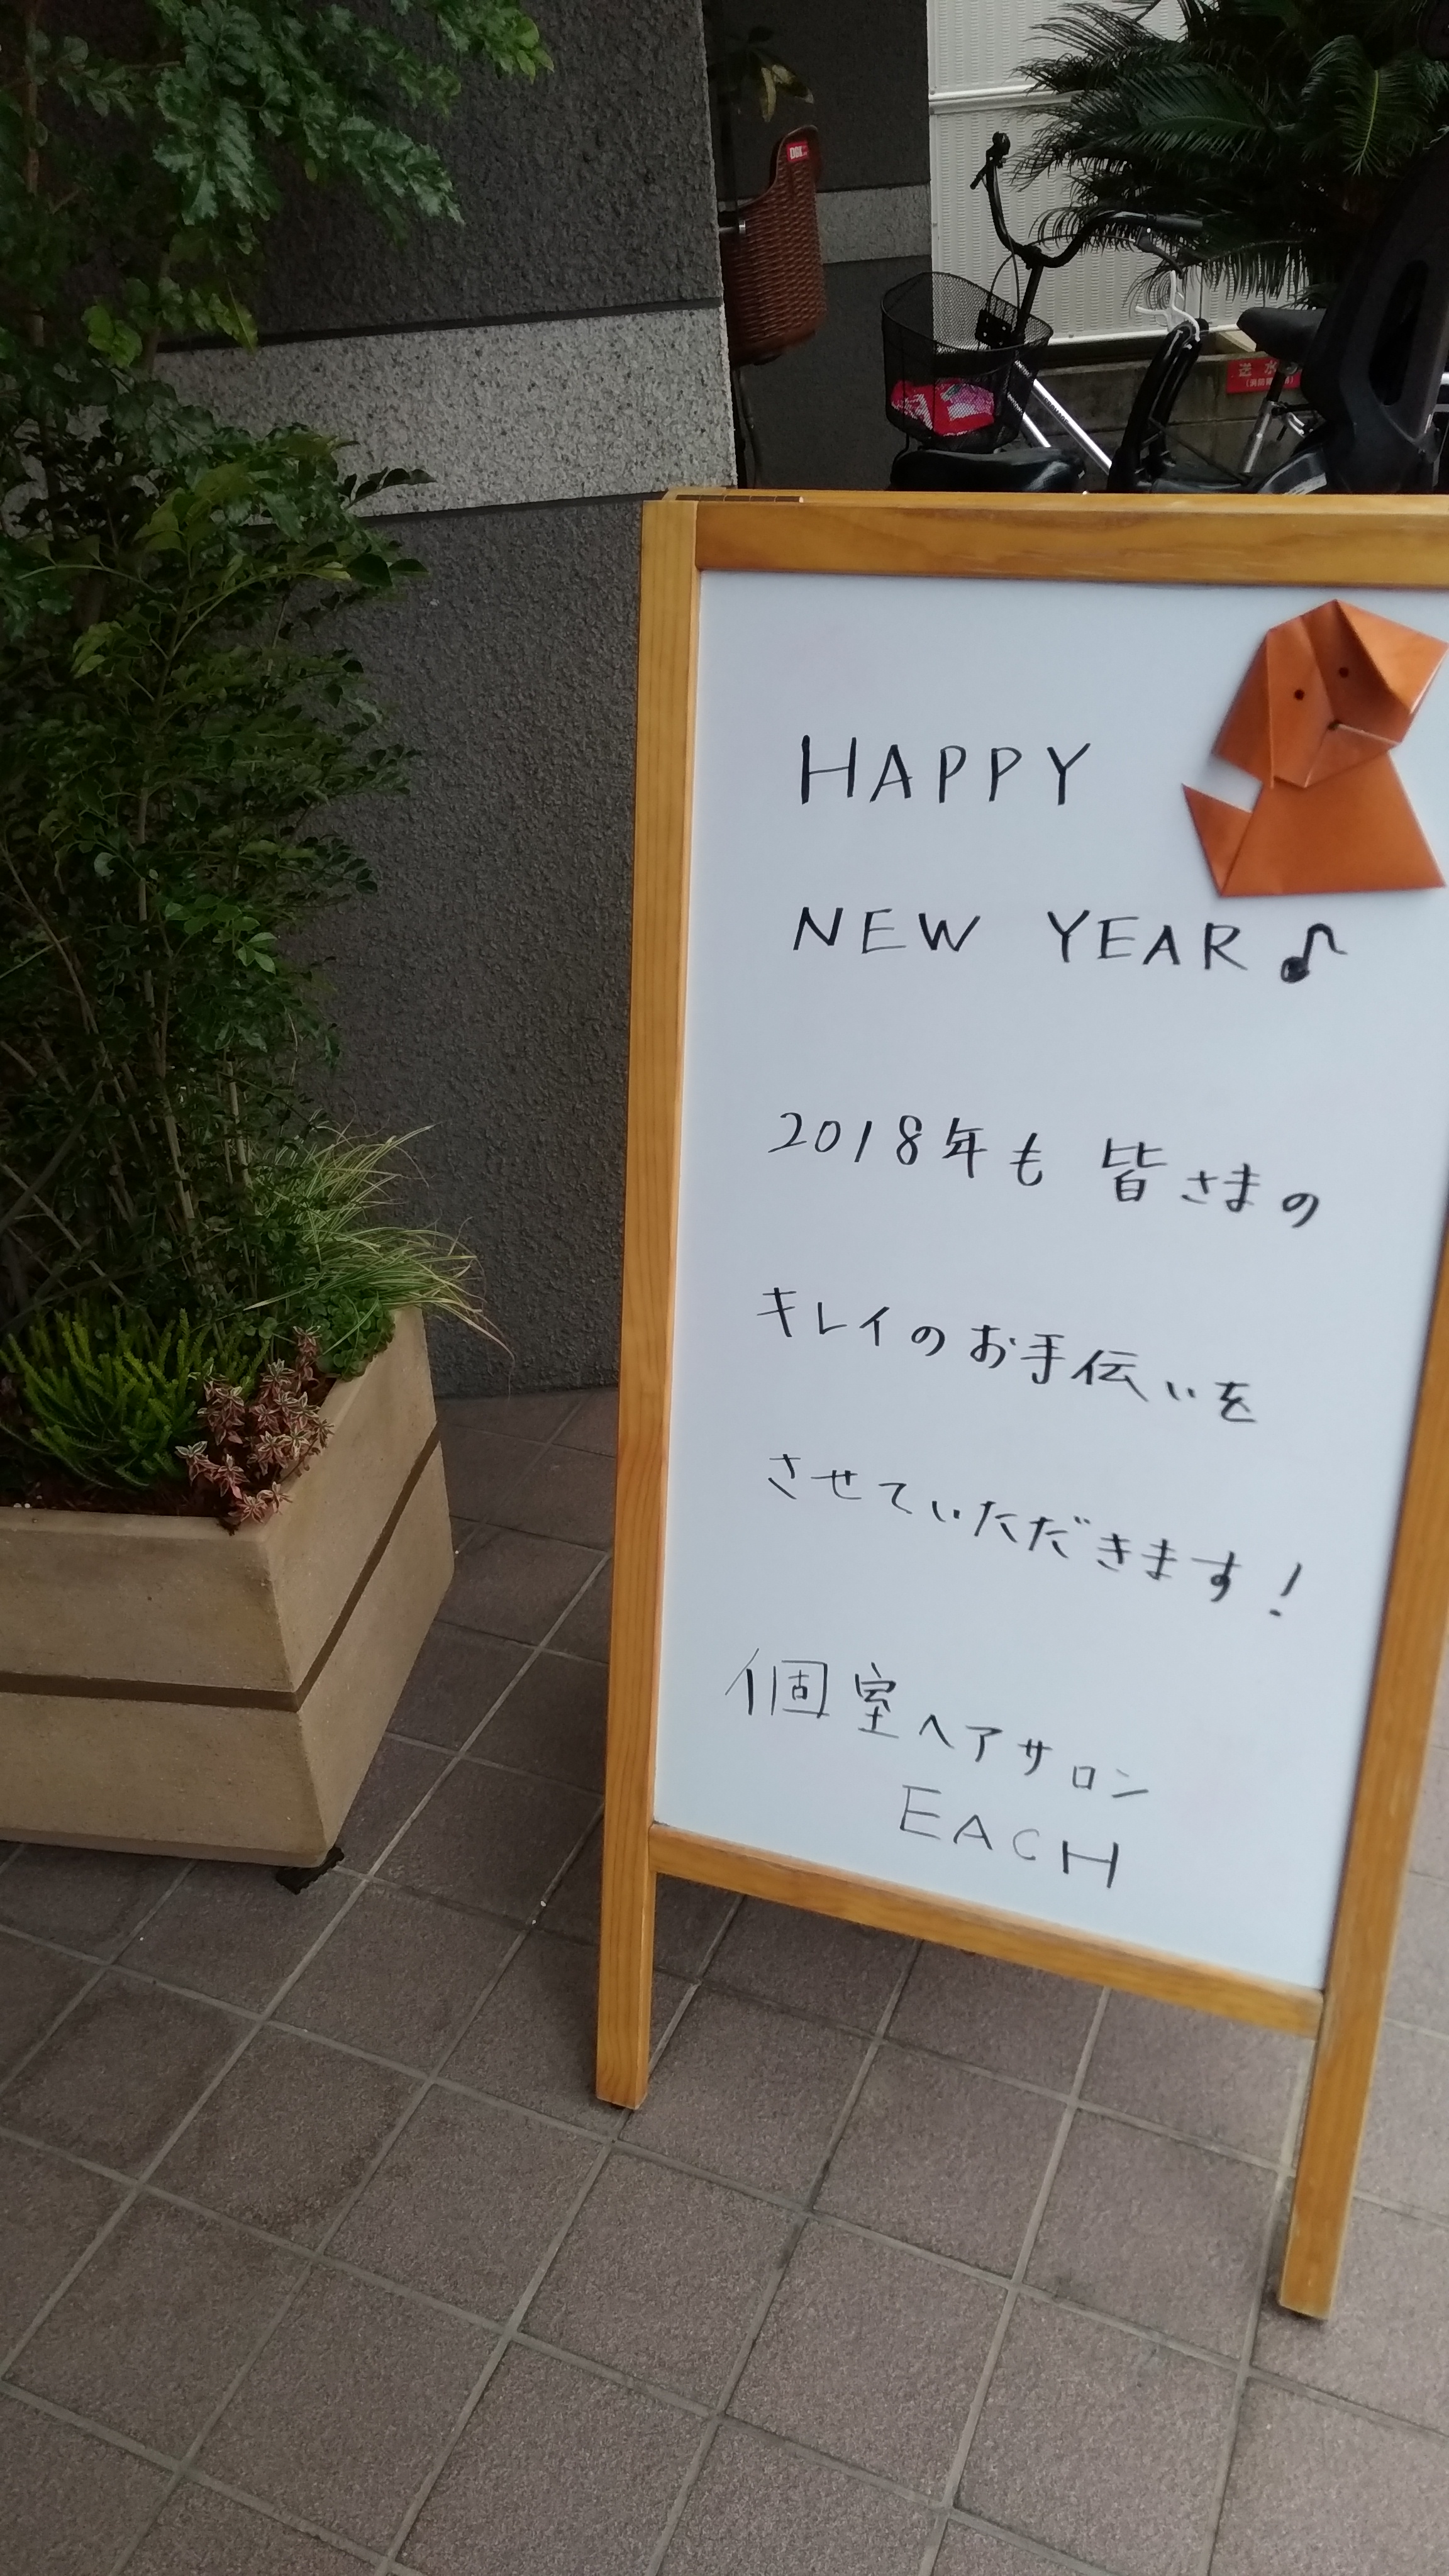 送水
HAPPY
NEW YEAR♪
2018年も 皆さまの
キレイのお手伝いを
させていただきます!
個室ヘアサロン
EACH